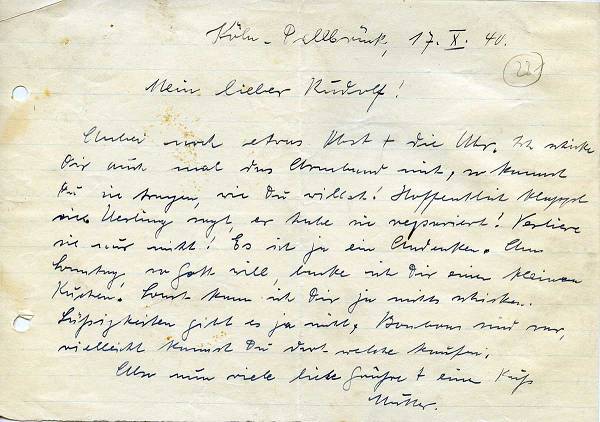 Köln-Dellbrück, 17. X. 40.
22
Mein lieber Rudolf!
Anbei noch etwas Obst + die Uhr. Ich schicke
Dir auch mal das Armband mit, so kannst
Du sie tragen, wie Du willst! Hoffentlich klappt
sie. sagt, er habe sie repariert! Verliere
sie nur nicht! Es ist ja ein Andenken. Am
Sonntag, so Gott will, backe ich Dir einen kleinen
Kuchen. Sonst kann ich Dir ja nichts schicken.
Süßigkeiten gibt es ja nicht, Bonbons sind rar,
vielleicht kannst Du dort welche kaufen.
Also nun viele liebe Grüße + einen Kuß
Mutter.